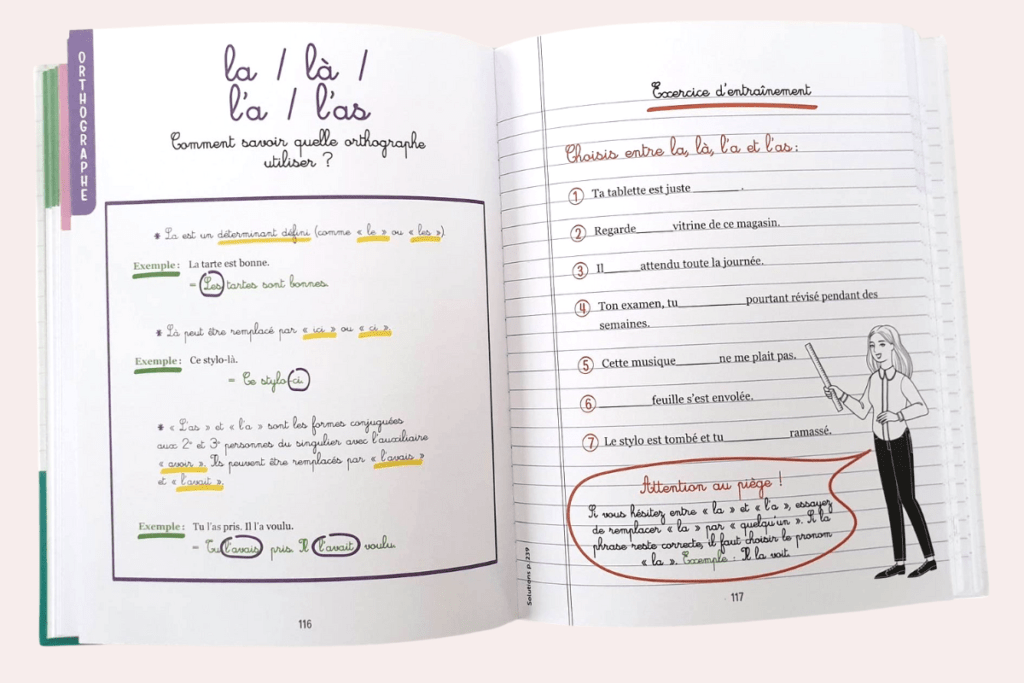 ORTHOGRAPHE
la / là /
l'a / l'as
Comment savoir quelle orthographe
utiliser ?
* La est un déterminant défini (comme « le » ou « les »).
Exemple : La tarte est bonne.
= Les tartes sont bonnes.
* Là peut être remplacé par « ici » ou « ci ».
Exemple : Ce stylo-là.
= Ce stylo-ci.
* « L'as » et « l'a » sont les formes conjuguées
aux 2e et 3e personnes du singulier avec l'auxiliaire
« avoir ». Ils peuvent être remplacés par « l'avais »
et « l'avait ».
Exemple : Tu l'as pris. Il l'a voulu.
= Tu l'avais pris. Il l'avait voulu.
116
Exercice d'entraînement
Choisis entre la, là, l'a et l'as :
1 Ta tablette est juste ________ .
2 Regarde______vitrine de ce magasin.
3 Il______attendu toute la journée.
4 Ton examen, tu___________pourtant révisé pendant des
semaines.
5 Cette musique_______ne me plait pas.
6 _________feuille s'est envolée.
7 Le stylo est tombé et tu___________ramassé.
Attention au piège !
Si vous hésitez entre « la » et « l'a », essayez
de remplacer « la » par « quelqu'un ». Si la
phrase reste correcte, il faut choisir le pronom
« la ». Exemple : Il la voit.
Solutions p. 239
117